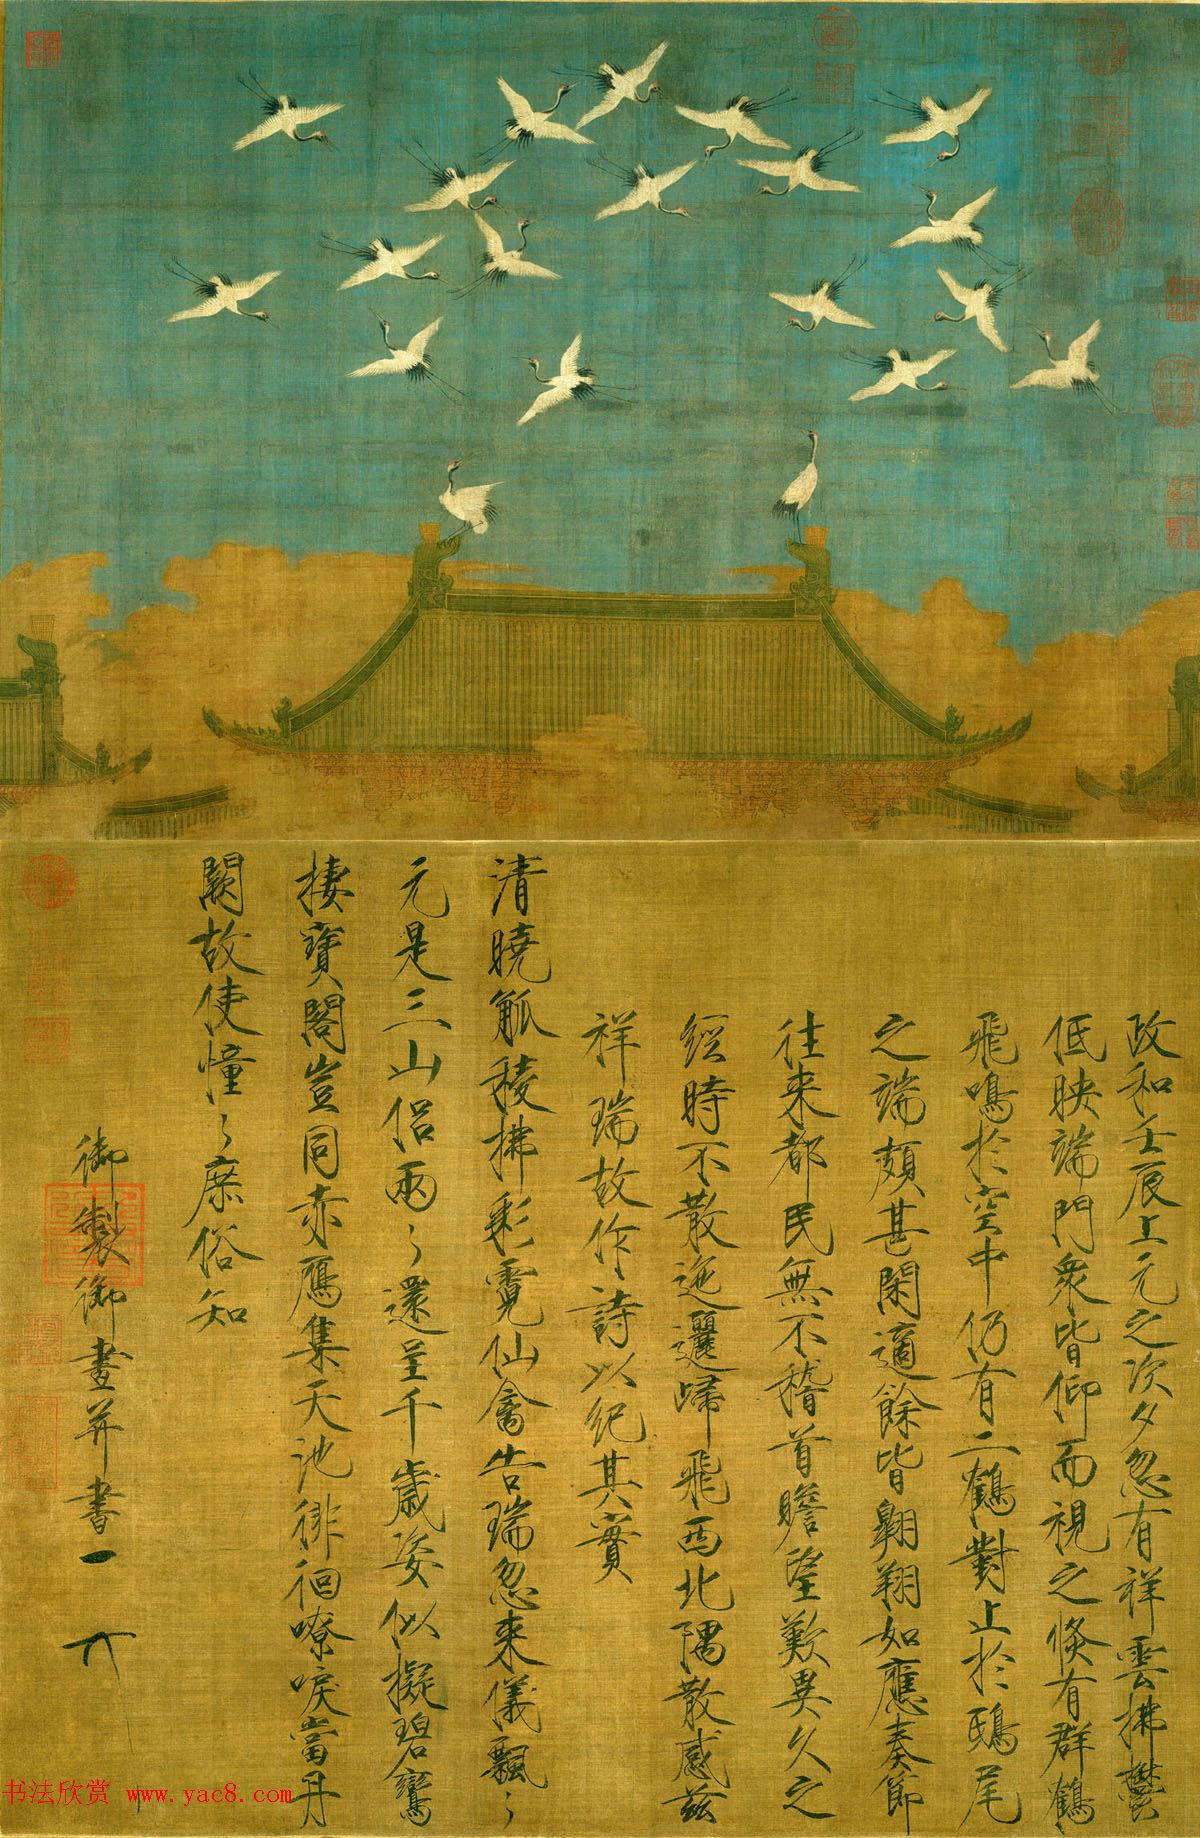 政和壬辰上元之次夕忽有祥雲拂鬱
低映端門衆皆仰而視之倏有群鶴
飛鳴於空中仍有二鶴對止於鴟尾
之端頗甚閑適餘皆翱翔如應奏節
往來都民無不稽首瞻望歎異久之
經時不散迤邐歸飛西北隅散感茲
祥瑞故作詩以紀其實
清曉觚稜拂彩霓仙禽告瑞忽來儀飄〻
元是三山侶兩〻還呈千歲姿似擬碧鸞
棲寶閣豈同赤鴈集天池徘徊嘹唳當丹
闕故使憧〻庶俗知
御製御畫并書
書法欣赏 www.yac8.com